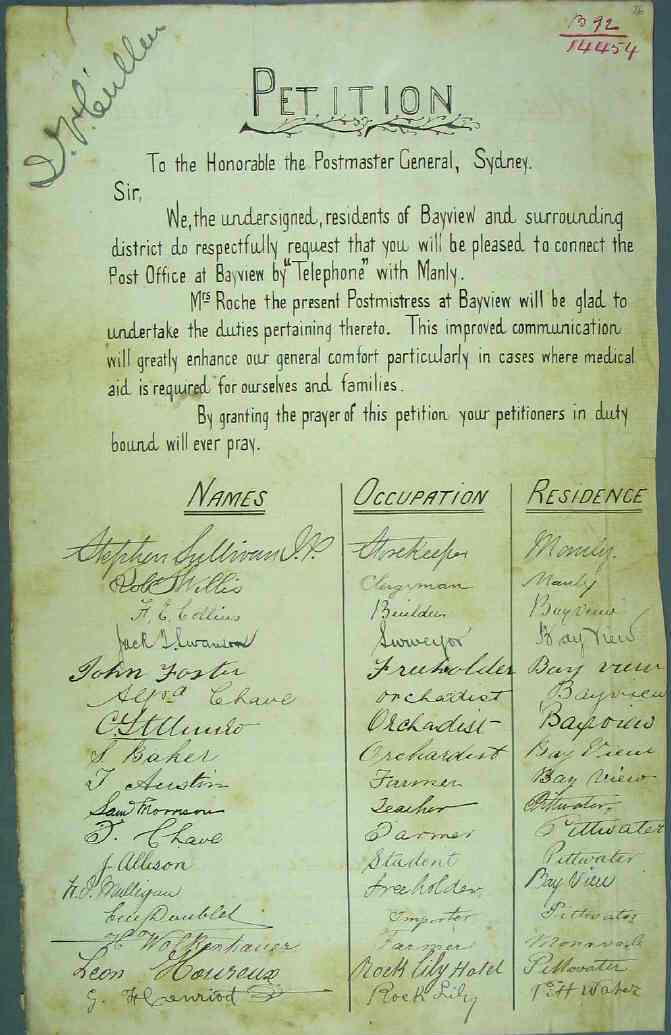 26
B 92
14454
PETITION
To the Honorable the Postmaster General, Sydney.
Sir,
We, the undersigned, residents of Bayview and surrounding
district do respectfully request that you will be pleased to connect the
Post Office at Bayview by "Telephone" with Manly.
Mrs Roche the present Postmistress at Bayview will be glad to
undertake the duties pertaining thereto. This improved communication
will greatly enhance our general comfort particularly in cases where medical
aid is required for ourselves and families.
By granting the prayer of this petition your petitioners in duty
bound will ever pray.
NAMES OCCUPATION RESIDENCE
Stephen Sullivan J.P. Storekeeper Manly.
Robt Willis Clergyman Manly
F. E. Collins Builder Bayview
Jack T. Swanson Surveyor Bay View
John Foster Freeholder Bay view
Alfrd Chave orchardist Bayview
Orchadist Bayview
S. Baker Orchardist Bay View
T Austin Farmer Bay View
Saml Morrison Teacher Pittwater
F. Chave Farmer Pittwater
J. Allison Student Pittwater
Milligan freeholder. Bay View
Doublet Importer Pittwater
Wolkenhauer Farmer
Leon Houreux Rock lily Hotel Pittwater
G. Henriod Rock Lily Pitt Water